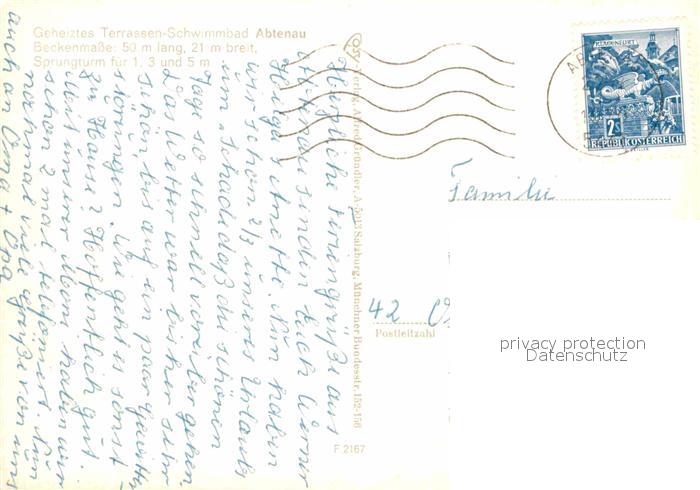 Geheiztes Terrassen-Schwimmbad Abtenau
Beckenmaße: 50 m lang, 21 m breit,
Sprungturm für 1, 3 und 5 m
Herzliche Feriengrüße aus
Abtenau senden Euch Werner
Helga + Anette. Nun haben
wir schon 2/3 unseres Urlaubs
um. Schade daß die schönen
Tage so schnell vorüber gehen.
Das Wetter war bisher sehr
schön, bis auf ein paar Gewitter
störungen. Wie geht es sonst
zu Hause? Hoffentlich gut.
Mit unserer Mom haben wir
schon 2 mal telefoniert. Nun
nochmal viele Grüße von uns
auch an Oma + Opa
Verlag Alfred Gründler, A-5013 Salzburg, Münchner Bundesstr. 152-156
KLAGENFURT
2 S
REPUBLIK ÖSTERREICH
Familie
42 O
Postleitzahl
privacy protection
Datenschutz
F 2167